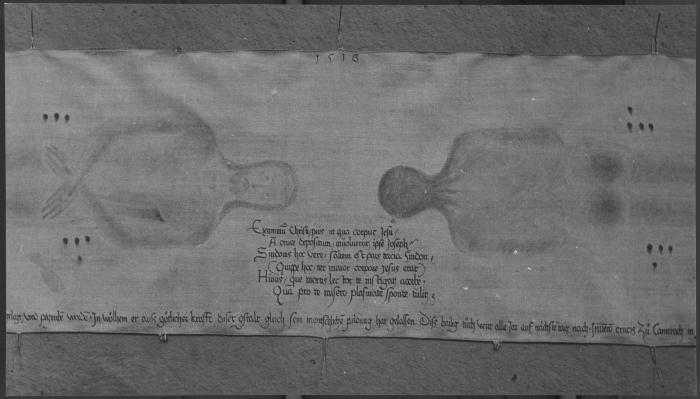 1516
Examinū Christe pius in qua corpus Jesu
A cruce depositum, inuoluerat ipse Joseph
Sindonis hec vere, saltem est pars tracia sindon,
(Quippe hec, ter maior corpore Jesus erat)
Huius, que mortis lec tor te
Qua pro te misero plasmate sponte tulit
vnd worden, In wölhem er auss götlicher krafft diser gstalt gleich sein menschliche pildung hat gelassen. Dise heilig tuch weist alle Jar auf nachste tag nach crucis Zů Camerach in